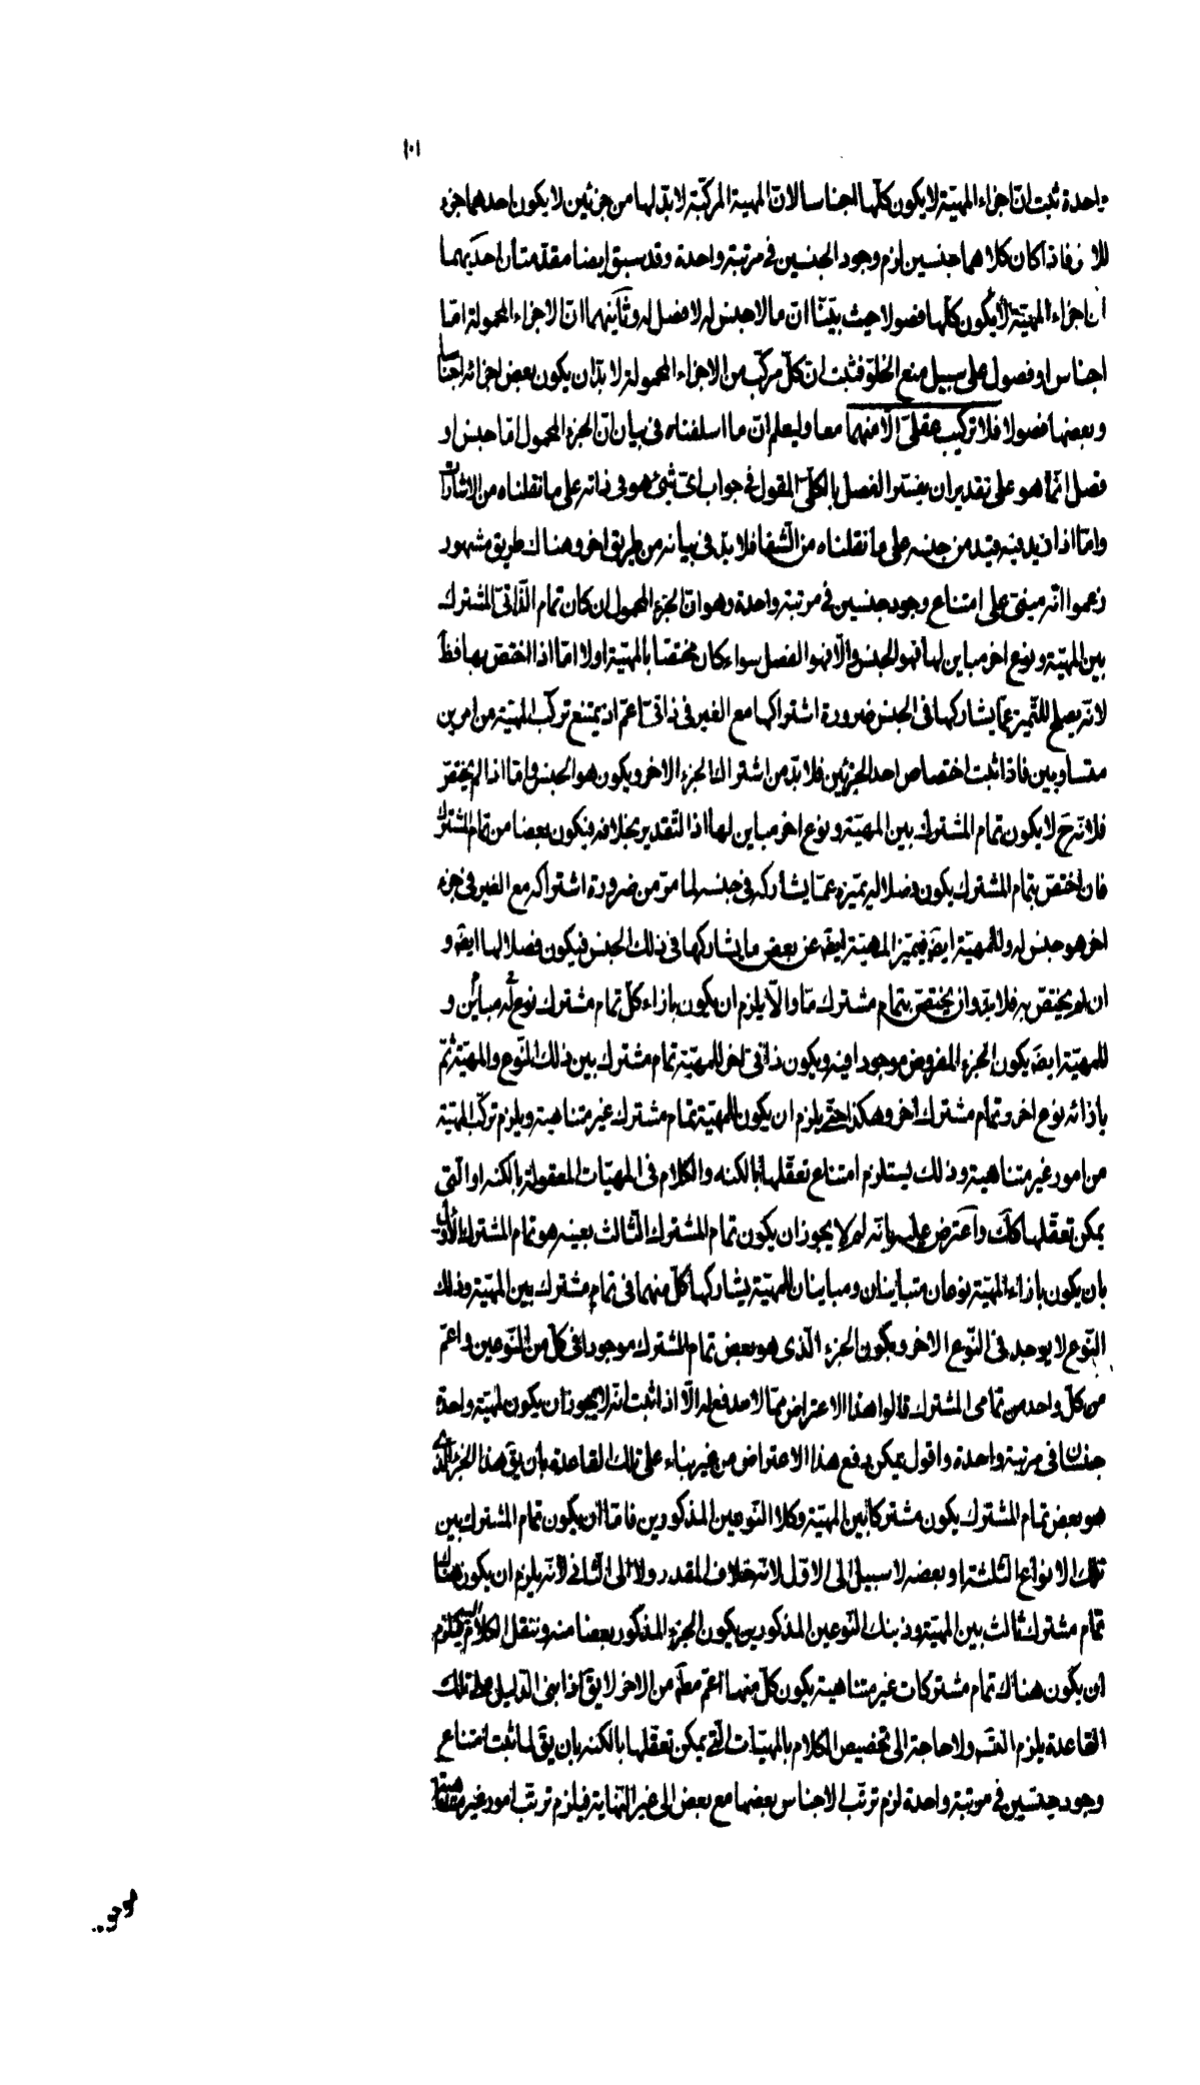 ١٠١
واحدة ثبت ان اجزاء المهيّة لا يكون كلّها اجناسا لان المهية المركّبة لا بدّ لها من جزئين لا يكون احدهما جزء
للاخر فاذا كان كلاهما جنسين لزم وجود الجنسين فى مرتبة واحدة وقد سبق ايضا مقدّمتان احديهما
ان اجزاء المهيّة لا يكون كلّها فصولا حيث بيّنّا ان ما لا جنس له لا فصل له وثانيهما ان الاجزاء المحمولة امّا
اجناس او فصول على سبيل منع الخلوّ فثبت ان كلّ مركّب من الاجزاء المحمولة لا بدّ ان يكون بعض اجزائه اجناسا
وبعضها فصولا فلا تركيب عقلىّ الّا منهما معا وليعلم انّ ما اسلفناه فى بيان انّ الجزء المحمول امّا جنس او
فصل انّما هو على تقدير ان يفسّر الفصل بالكلّىّ المقول فى جواب اىّ شئ هو فى ذاته على ما نقلناه من الاشارات
وامّا اذا زيد فيه قيد من جنسه على ما نقلناه من الشّفا فلا بدّ فى بيانه من طريق اخر وهناك طريق مشهور
زعموا انّه مبنىّ على امتناع وجود جنسين فى مرتبة واحدة وهو انّ الجزء المحمول ان كان تمام الذّاتىّ المشترك
بين المهيّة ونوع اخر مباين لها فهو الجنس والّا فهو الفصل سواء كان مختصّا بالمهيّة اولا امّا اذا اختصّ بها فظ
لانّه يصلح للتّميز عمّا يشاركها فى الجنس ضرورة اشتراكها مع الغير فى ذاتىّ اعمّ اذ يمتنع تركّب المهيّة من امرين
متساويين فاذا ثبت اختصاص احد الجزئين فلا بدّ من اشتراك الجزء الاخر ويكون هو الجنس وامّا اذا لم يختصّ
فلانّه ح لا يكون تمام المشترك بين المهيّة ونوع اخر مباين لها اذ التّقدير بخلافه فيكون بعضا من تمام المشترك
فان اختصّ بتمام المشترك يكون فصلا له يميّزه عمّا يشاركه فى جنسه لما مرّ من ضرورة اشتراكه مع الغير فى جزء
اخر هو جنس له وللمهيّة ايضَ فيميّز المهيّة ايضَ عن بعض ما يشاركها فى ذلك الجنس فيكون فصلا لها ايضَ و
ان لم يختصّ به فلا بدّ وان يختصّ بتمام مشترك مّا والّا يلزم ان يكون بازاء كلّ تمام مشترك نوع له مباين و
للمهيّة ايضَ يكون الجزء المفروض موجودا فيه ويكون ذاتىّ اخر للمهيّة تمام مشترك بين ذلك النّوع والمهيّة ثمّ
بازائه نوع اخر وتمام مشترك اخر وهكذا حتّى يلزم ان يكون للمهيّة تمام مشترك غير متناهية ويلزم تركّب المهيّة
من امور غير متناهية وذلك يستلزم امتناع تعقّلها بالكنه والكلام فى المهيّات المعقولة بالكنه او الّتى
يمكن تعقّلها كلك واعترض عليه بانّه لم لا يجوز ان يكون تمام المشترك الثّالث بعينه هو تمام المشترك الاوّل
بان يكون بازاء المهيّة نوعان متباينان ومباينان للمهيّة يشاركها كلّ منهما فى تمام مشترك بين المهيّة وذلك
النّوع لا يوجد فى النّوع الاخر ويكون الجزء الّذى هو بعض تمام المشترك موجودا فى كلّ من النّوعين واعمّ
من كلّ واحد من تمامى المشترك قالوا هذا الاعتراض ممّا لا مدفع له الّا اذا ثبت انّه لا يجوز ان يكون لمهيّة واحدة
جنسان فى مرتبة واحدة واقول يمكن دفع هذا الاعتراض من غير بناء على تلك القاعدة بان يقَ هذا الجزء الّذى
هو بعض تمام المشترك يكون مشتركا بين المهيّة وكلا النّوعين المذكورين فامّا ان يكون تمام المشترك بين
تلك الانواع الثّلثة او بعضه لا سبيل الى الاوّل لانّه خلاف المقدر ولا الى الثّانى لانّه يلزم ان يكون هناك
تمام مشترك ثالث بين المهيّة وذينك النّوعين المذكورين يكون الجزء المذكور بعضا منه وننقل الكلام اليه فيلزم
ان يكون هناك تمام مشتركات غير متناهية يكون كلّ منها اعمّ مطَ من الاخر لا يقَ اذا بنى الدّليل على تلك
القاعدة يلزم التسَه ولا حاجة الى تخصيص الكلام بالمهيّات الّتى يمكن تعقّلها بالكنه بان يقَ لما ثبت امتناع
وجود جنسين فى مرتبة واحدة لزم ترتّب الاجناس بعضها مع بعض الى غير النّهاية فيلزم ترتّب امور غير متناهية